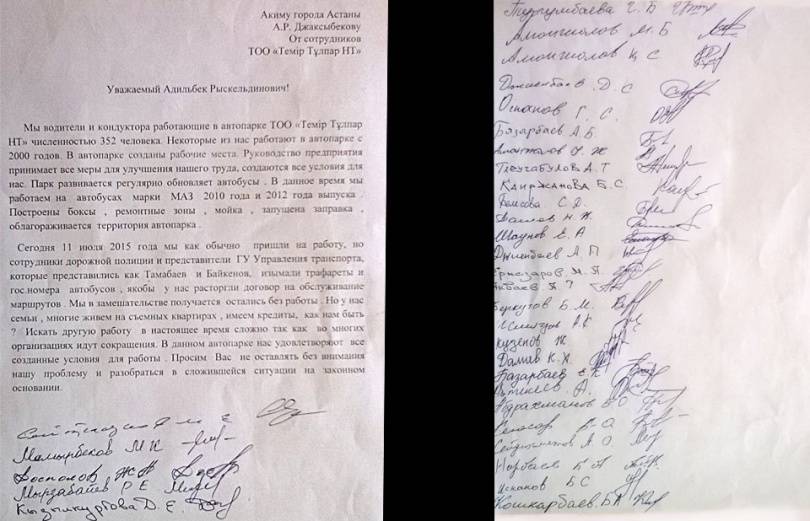 Акиму города Астаны
А.Р. Джаксыбекову
От сотрудников
ТОО «Темір Тұлпар НТ»
Уважаемый Адильбек Рыскельдинович!
Мы водители и кондуктора работающие в автопарке ТОО «Темір Тұлпар
НТ» численностью 352 человека. Некоторые из нас работают в автопарке с
2000 годов. В автопарке созданы рабочие места. Руководство предприятия
принимает все меры для улучшения нашего труда, создаются все условия для
нас. Парк развивается регулярно обновляет автобусы . В данное время мы
работаем на автобусах марки МАЗ 2010 года и 2012 года выпуска .
Построены боксы , ремонтные зоны , мойка , запущена заправка ,
облагораживается территория автопарка .
Сегодня 11 июля 2015 года мы как обычно пришли на работу, но
сотрудники дорожной полиции и представители ГУ Управления транспорта,
которые представились как Тамабаев и Байкенов, изымали трафареты и
гос.номера автобусов , якобы у нас расторгли договор на обслуживание
маршрутов . Мы в замешательстве получается остались без работы . Но у нас
семьи , многие живем на съемных квартирах , имеем кредиты, как нам быть
? Искать другую работу в настоящее время сложно так как во многих
организациях идут сокращения. В данном автопарке нас удовлетворяют все
созданные условия для работы . Просим Вас не оставлять без внимания
нашу проблему и разобраться в сложившейся ситуации на законном
основании.
Мамырбеков М К
Досполов Ж
Мырзабаев Р Е
Кызылкуртова Д. Е.
Турзумбаева Г. Б
Амонжолов М. Б
Амонжолов К С
Д. С
Оспанов Г. С.
Базарбаев А. Б.
Амонжолов Ж
А. Т
Каиржанова Б. С.
С. Д.
Н. Ж
Шаупов Е. А
Дүйсенбаев А. П
Беркутов Б. М.
Дамав К. Х.
Базарбаев Е. К
А.
Абдрахманов Б О
А О
Нарбаев Б А
Испанов Б С
Кошкарбаев. Б А